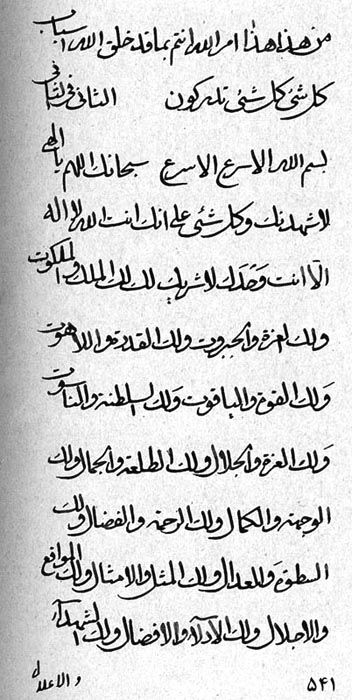 من هذا هذا امر الله انتم بما قد خلق الله اسباب
كل شئ كل شئ تدركون الثانى فى الثانى
بسم الله الاسرع الاسرع سبحانك اللهم يا الهى
لاشهدنك وكل شئ على انك انت الله لا اله
الا انت وحدك لا شريك لك لك الملك والملكوت
ولك العزة والجبروت ولك القدرة واللاهوت
ولك القوة والياقوت ولك السلطنة والناسوت
ولك العزة والجلال ولك الطلعة والجمال ولك
الوجهة والكمال ولك الرحمة والفضال ولك
السطوة والعدال ولك المثل والامثال ولك المواقع
والاجلال ولك الآلاء والافضال ولك
۵۴۱